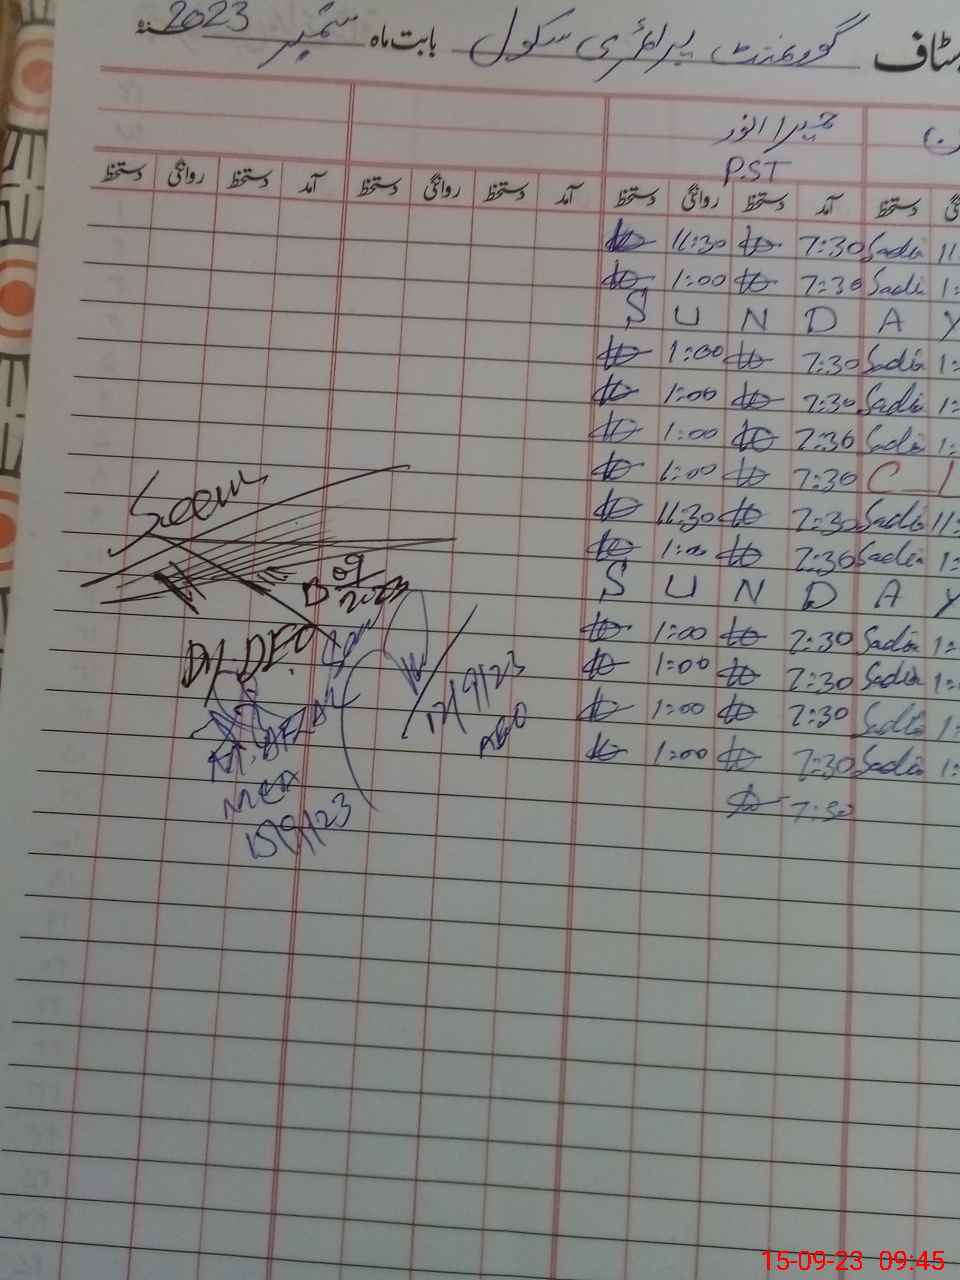 سٹاف گورنمنٹ پرائمری سکول بابت ماہ ستمبر 2023ء
حمیرا انور
P.ST
دستخط روانگی دستخط آمد دستخط روانگی دستخط آمد دستخط روانگی دستخط آمد دستخط
11:30 7:30 Sadia 11
1:00 7:30 Sadia 1:
S U N D A Y
1:00 7:30 Sadia 1:
1:00 7:30 Sadia 1:
1:00 7:30 Sadia 1:
1:00 7:30 C L
11:30 7:30 Sadia 11:
1:00 7:30 Sadia 1:
S U N D A Y
1:00 7:30 Sadia 1:
1:00 7:30 Sadia 1:
1:00 7:30 Sadia 1:
1:00 7:30 Sadia 1:
7:30
09
2023
Dy. DEO
AEO
MEA
15/9/23
15-09-23 09:45